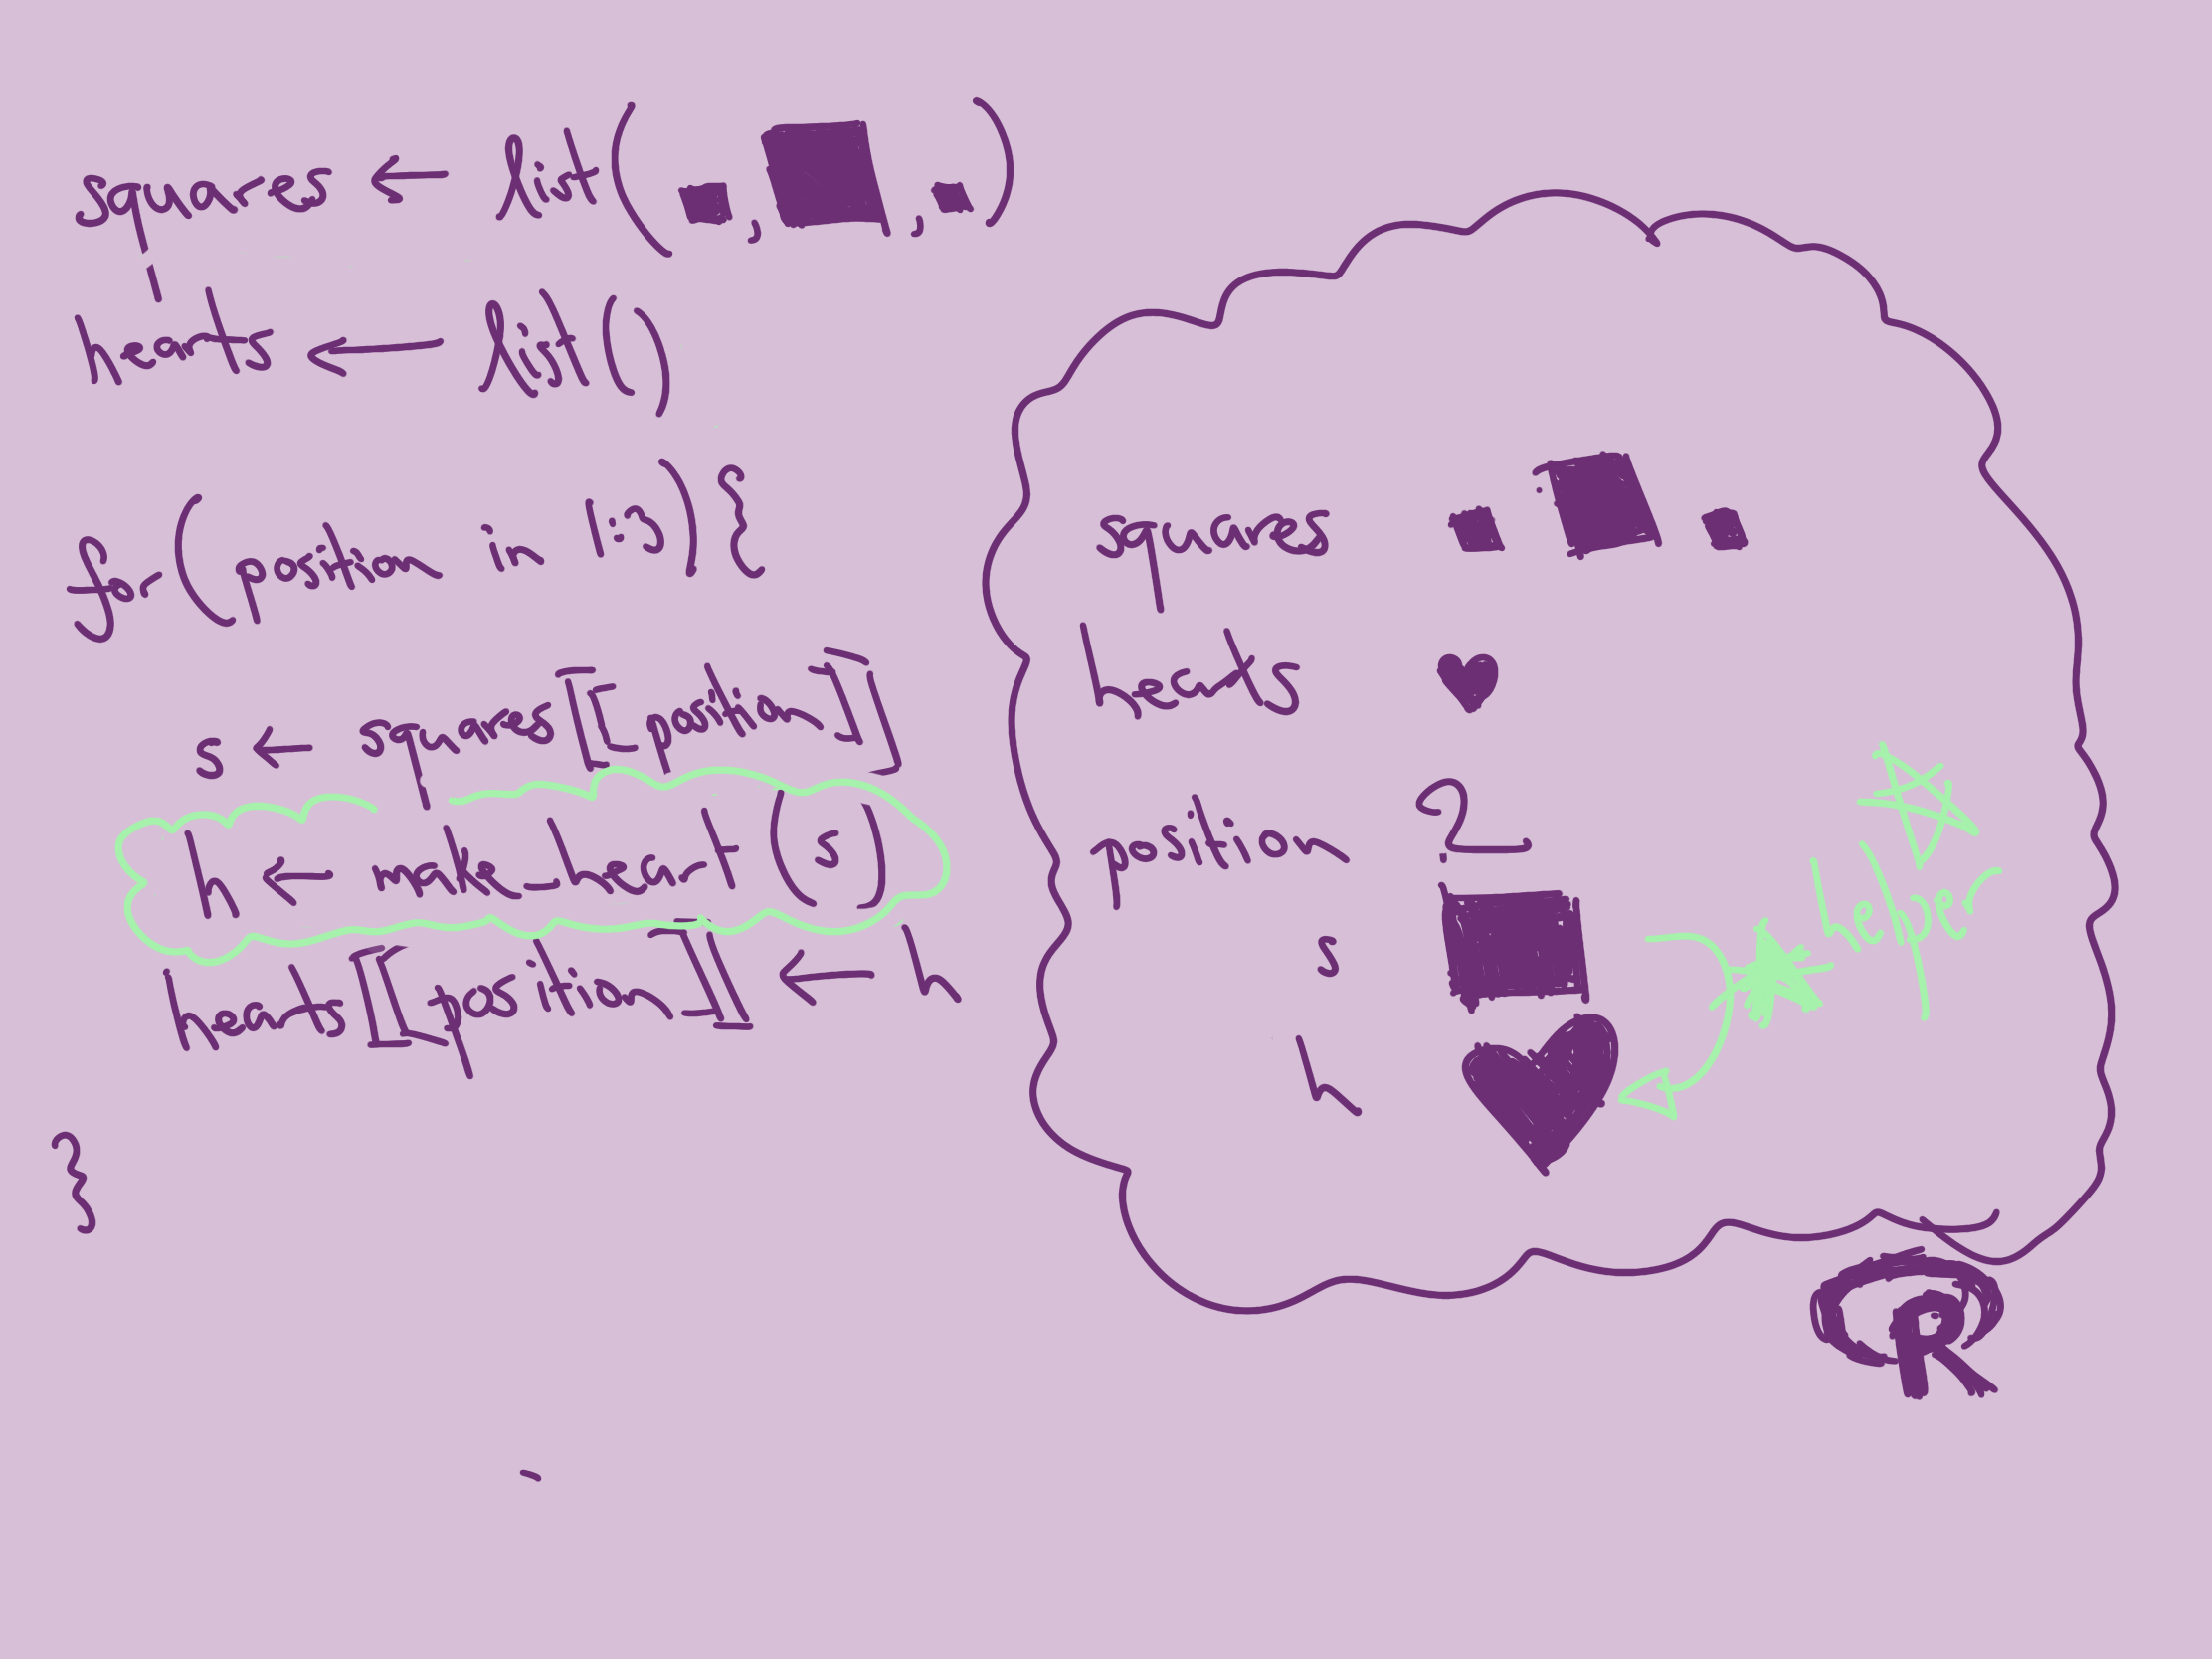 squares ← list( , , )
hearts ← list()
for (position in 1:3) {
s ← squares[[position]]
h ← make_heart(s)
hearts[[position]] ← h
}
squares
hearts
position 2
s
h
helper
R